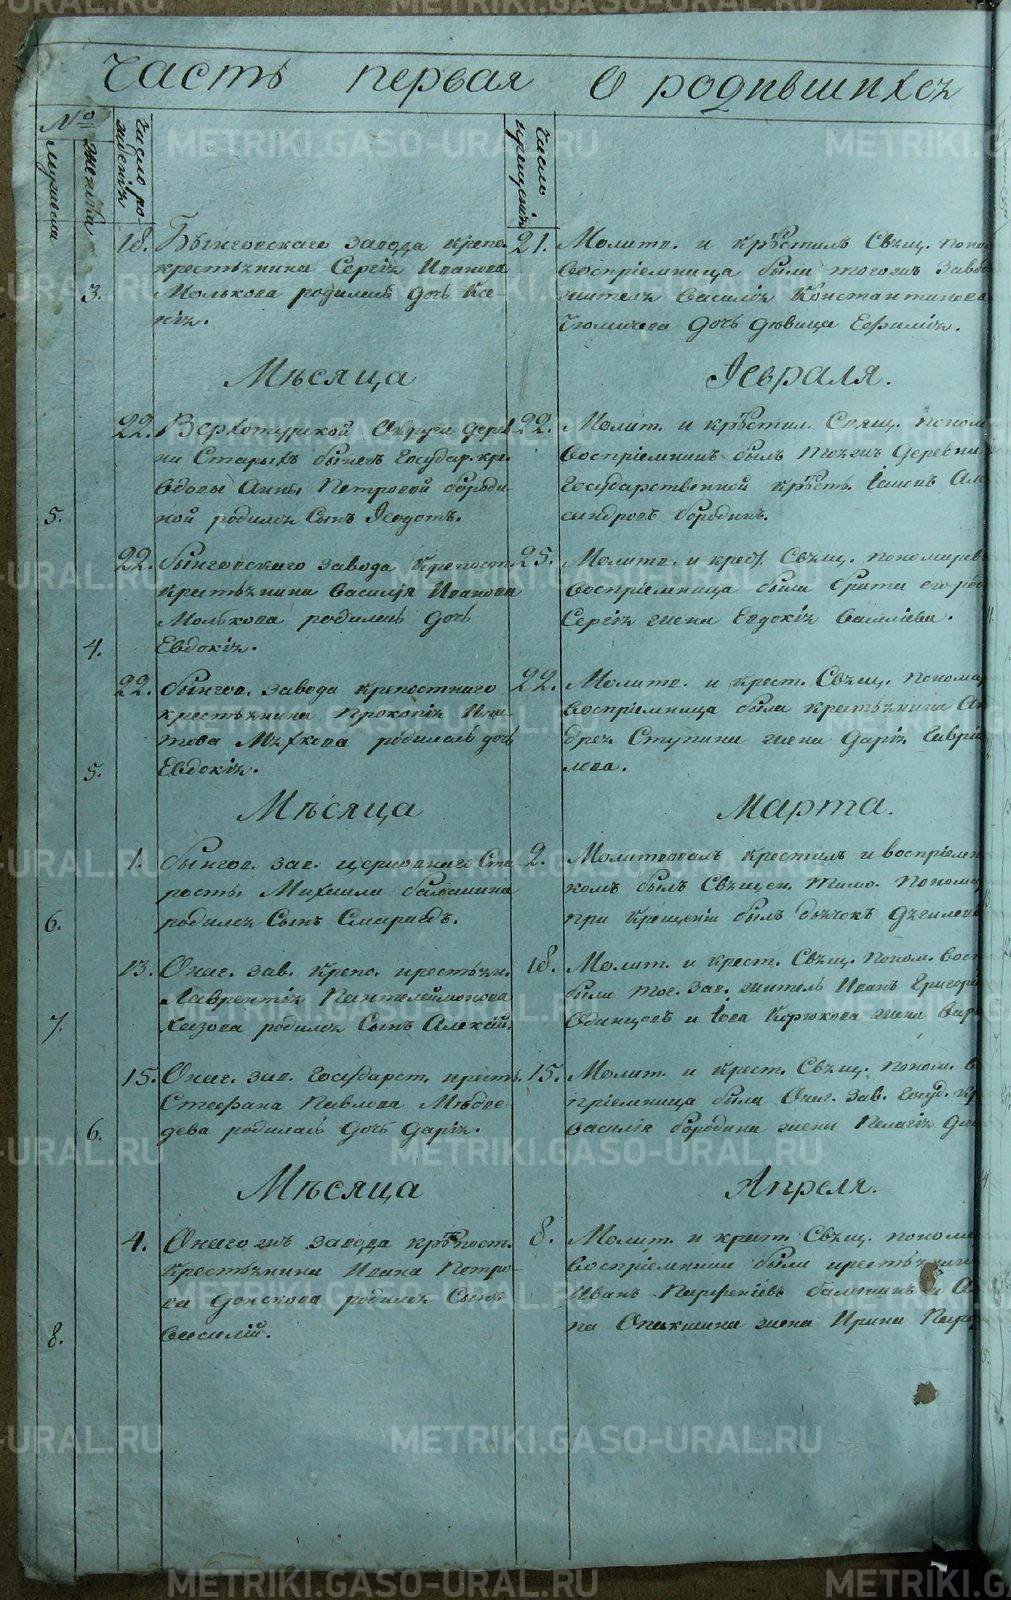 Часть первая О родившихся
№
мужеска
женска
число рождения
число крещения
3.
18. Бынговскаго завода крепо.
крестьянина Сергія Иванова
Молькова родилась дочь Ксе-
нія.
21. Молитв. и крѣстилъ Свящ. Поно
воспріемница были тогожъ заво
жителя Василія Константинова
дочь дѣвица Евфалія.
Мѣсяца Февраля.
5.
22. Верхотурской Округи дерев
ни Старыхъ бынегъ Государ. кре.
вдовы Анны Петровой бороди
ной родился Сынъ Ѳеодотъ.
22. Молит. и крѣстил. Свящ. поном
воспріемник былъ тоежъ деревни
Государственной крѣсть. Але
сандровъ бородинъ.
4.
22. бынговскаго завода Крепост
Крестьянина Василія Иванова
Молькова родилась дочь
Евдокія.
25. Молитв. и крест. Свящ. пономарев
воспріемница была брата его род
Сергія жена Евдокія Васильева.
5.
22. бынгов. завода крепостнаго
крестьянина Прокопія Игна-
това родилась дочь
Евдокія.
22. Молитв. и крест. Свящ. понома
воспріемница была крестьянина Ан
дрея Ступина жена Дарія Гаври
лова.
Мѣсяца Марта.
6.
1. бынгов. зав. церковнаго Ста
росты Михаила балакина
родился Сынъ Смарагдъ.
2. Молитвовалъ крестилъ и воспріемн
комъ былъ Священ. Тимо. Поном
при крещеніи былъ дьячокъ
7.
13. Онаг. зав. Крепс. крестьян.
Лаврентія Пантелеймонова
родился Сынъ Алексѣй.
18. Молит. и крест. Свящ. поном. вос
были тог. зав. житель Иванъ Григор
Одинцовъ и Іова Корюкова жена Вар
6.
15. Онаг. зав. Государст. крестьян.
Стефана Павлова Мѣдве
дева родилась дочь Дарія.
15. Молит. и крест. Свящ. поном. в
пріемница были Онаг. зав. Госуд. кр
Василія бородина жена Пелагія
Мѣсяца Апреля.
8.
4. Онаго жъ завода крѣпост.
Крестьянина Ивана Петро-
ва Донскова родился Сынъ
Василій.
8. Молит. и крест. Свящ. поном
воспріемники были крестьянин
Иванъ Парфеніевъ
на жена Ирина
METRIKI.GASO-URAL.RU